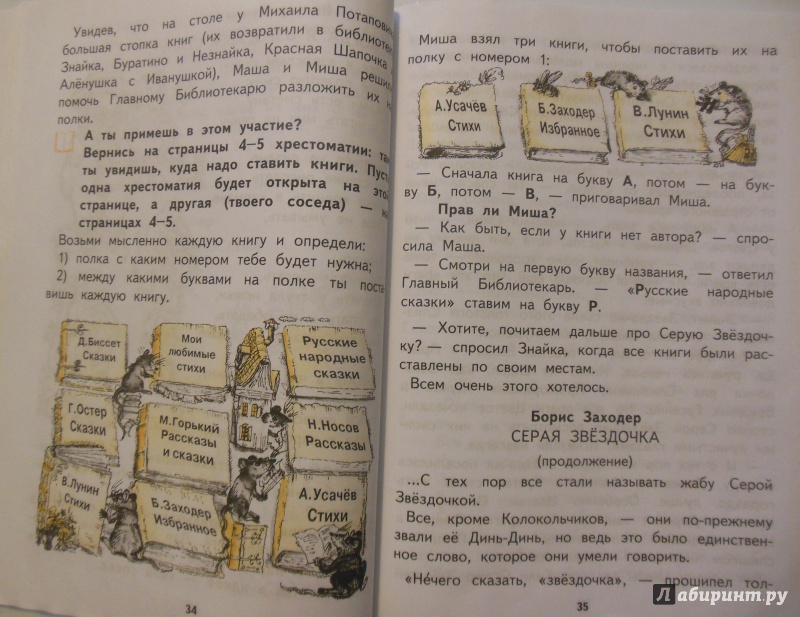 Увидев, что на столе у Михаила Потапови
большая стопка книг (их возвратили в библиотек
Знайка, Буратино и Незнайка, Красная Шапочка
Алёнушка с Иванушкой), Маша и Миша решил
помочь Главному Библиотекарю разложить их н
полки.
А ты примешь в этом участие?
Вернись на страницы 4–5 хрестоматии: та
ты увидишь, куда надо ставить книги. Пуст
одна хрестоматия будет открыта на это
странице, а другая (твоего соседа) — н
страницах 4–5.
Возьми мысленно каждую книгу и определи:
1) полка с каким номером тебе будет нужна;
2) между какими буквами на полке ты поста
вишь каждую книгу.
Д.Биссет
Сказки
Мои
любимые
стихи
Русские
народные
сказки
Г.Остер
Сказки
М.Горький
Рассказы
и сказки
Н.Носов
Рассказы
В.Лунин
Стихи
Б.Заходер
Избранное
А.Усачёв
Стихи
34
Миша взял три книги, чтобы поставить их на
полку с номером 1:
А.Усачёв
Стихи
Б.Заходер
Избранное
В.Лунин
Стихи
— Сначала книга на букву А, потом — на бук-
ву Б, потом — В, — приговаривал Миша.
Прав ли Миша?
— Как быть, если у книги нет автора? — спро-
сила Маша.
— Смотри на первую букву названия, — ответил
Главный Библиотекарь. — «Русские народные
сказки» ставим на букву Р.
— Хотите, почитаем дальше про Серую Звёздоч-
ку? — спросил Знайка, когда все книги были рас-
ставлены по своим местам.
Всем очень этого хотелось.
Борис Заходер
СЕРАЯ ЗВЁЗДОЧКА
(продолжение)
...С тех пор все стали называть жабу Серой
Звёздочкой.
Все, кроме Колокольчиков, — они по-прежнему
звали её Динь-Динь, но ведь это было единствен-
ное слово, которое они умели говорить.
«Не́чего сказать, «звёздочка», — прошипел тол-
35
Лабиринт.ру